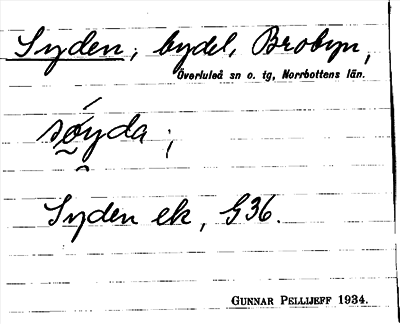 Syden, bydel, Brobyn,
Överluleå sn o. tg, Norrbottens län.
söyda;
Syden ek, G36.
GUNNAR PELLIJEFF 1934.